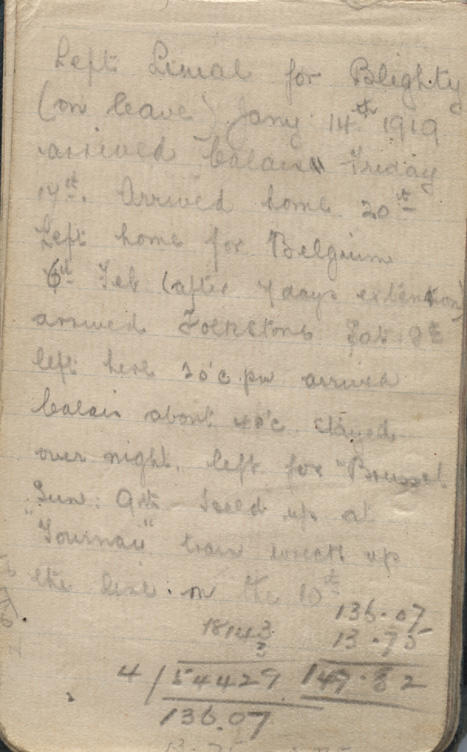 Left Limal for Blighty
(on leave) Jany 14th 1919
arrived Calais Friday
17th. Arrived home 20th
Left home for Belgium
6th Feb (after 7 days extention)
arrived Folkstone Feb 8th
left here 2 o'c pm arrived
Calais about 4 o'c stayed
over night, left for "Brussel
Sun: 9th held up at
"Tournai" train wreck up
the line. on the 10th
136.07
18143 13.75
3
4/54429 149.82
136.07
13.75